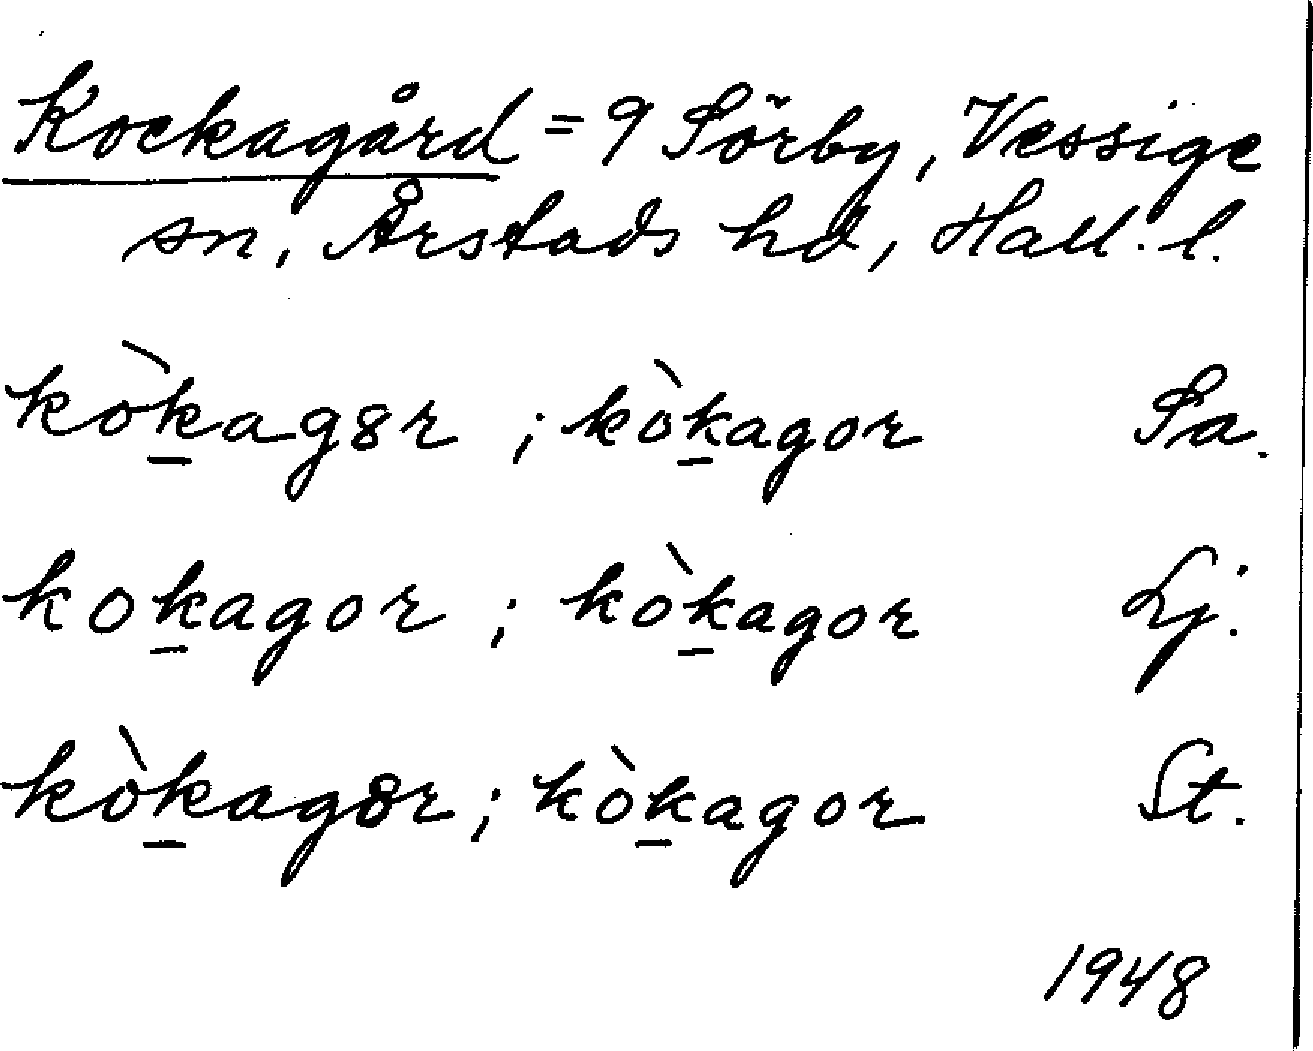 Kockagård = 9 Sörby, Vessige
sn, Årstads hd, Hall. l.
kòk̲ag8r ; kòk̲agor Sa.
kok̲agor ; kòk̲agor Lj.
kòk̲ag8r ; kòk̲agor St.
1948